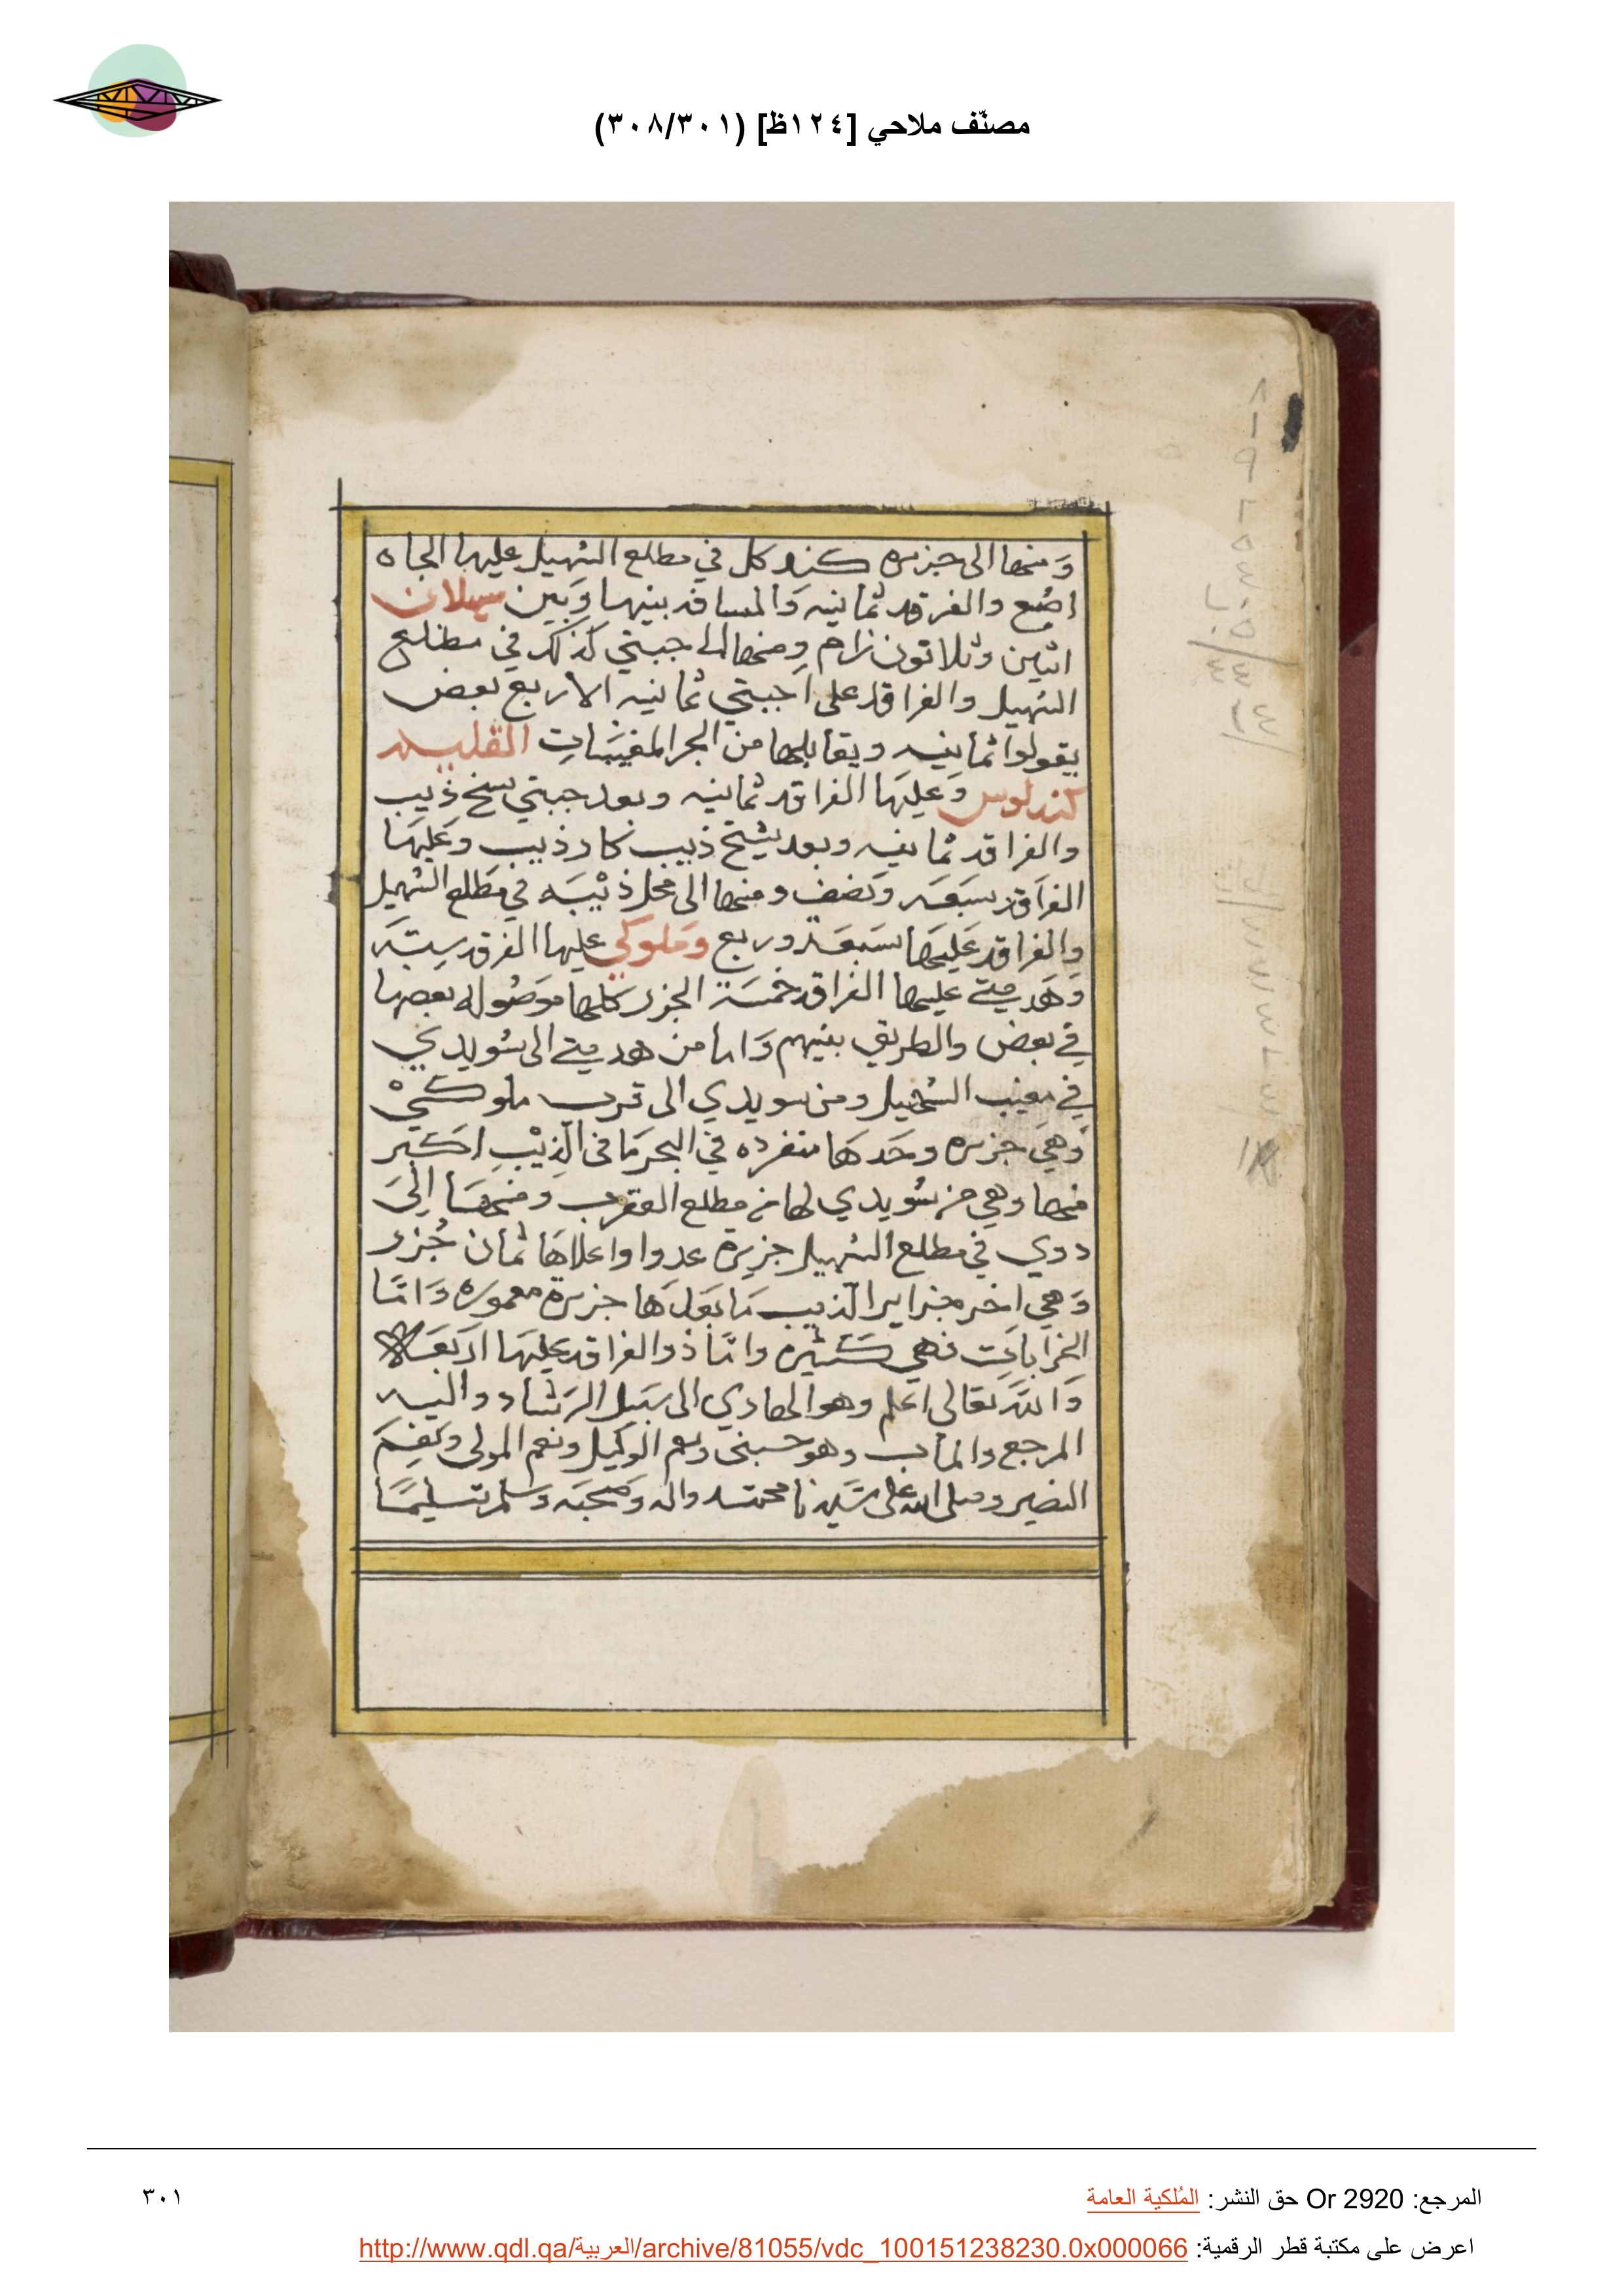 مصنّف ملاحي [١٢٤ظ] (٣٠٨/٣٠١)
وَمنها الى جزيره كندكل في مطلع السُهيل عليها الجاه
اصُبع والفرقد ثمانيه وَالمسافه بينها وَبَين سيلان
اثنين وثلاثون زام ومنها الى جبتي كذلك في مطلع
السُهيل والفراقد على اجبتي ثمانيه الا ربع بعض
يقولوا ثمانيه ويقابلها من البحر المغيبَات
كندلوس وَعليهَا الفراقد ثمانيه وبعد جبتي شيخ ذيب
والفراقد ثمانيه وبعد شيخ ذيب كار ذيب وعَليهَا
الفرَاقد سَبعَه وَنصف ومنها الى محل ذيْبَه في مَطلع السُهيل
وِالفراقد عَليهَا سَبعَة وربع وَملوكي عليها الفرقد سِتهَ
وَهَدمتي عليها الفراقد خمسَة الجزر كلها موَصُوله بعضها
في بعض والطريق بينهم وَاما من هدمتي الى سُويدي
في مغيب السُهيل ومن سويدي الى قرب ملوكيْ
وَهيَ جزيره وحَدهَا منفرده في البحر مَا فى الذِيْبِ اكبر
منها وهي من سُويدي لها في مطلع العقرب وَمنهَا اِلىَ
ددوي في مطلع السُهيل جزيرة عدوا واعلاهَا ثمان جُزر
وَهي اخر جزاير الذيب مَا بَعدهَا جزيرة معموره وَامّا
الخرَاباتِ فهي كثيره وامّا ذوالفراقد عليهَا اربَعَه
وَاللهَ تعَالى اعَلم وهو الهادي الى سَبيل الرشاد واليه
المرجع وَالمآب وهو حسبنى ونعم الوكيل ونعم المولى ونِعمَ
النصير وصلى الله على سَيدنا محمد واله وَصحبَه وَسلم تسليمًا
المرجع: Or 2920 حق النشر: المُلكية العامة
٣٠١
اعرض على مكتبة قطر الرقمية: http://www.qdl.qa/العربية/archive/81055/vdc_100151238230.0x000066